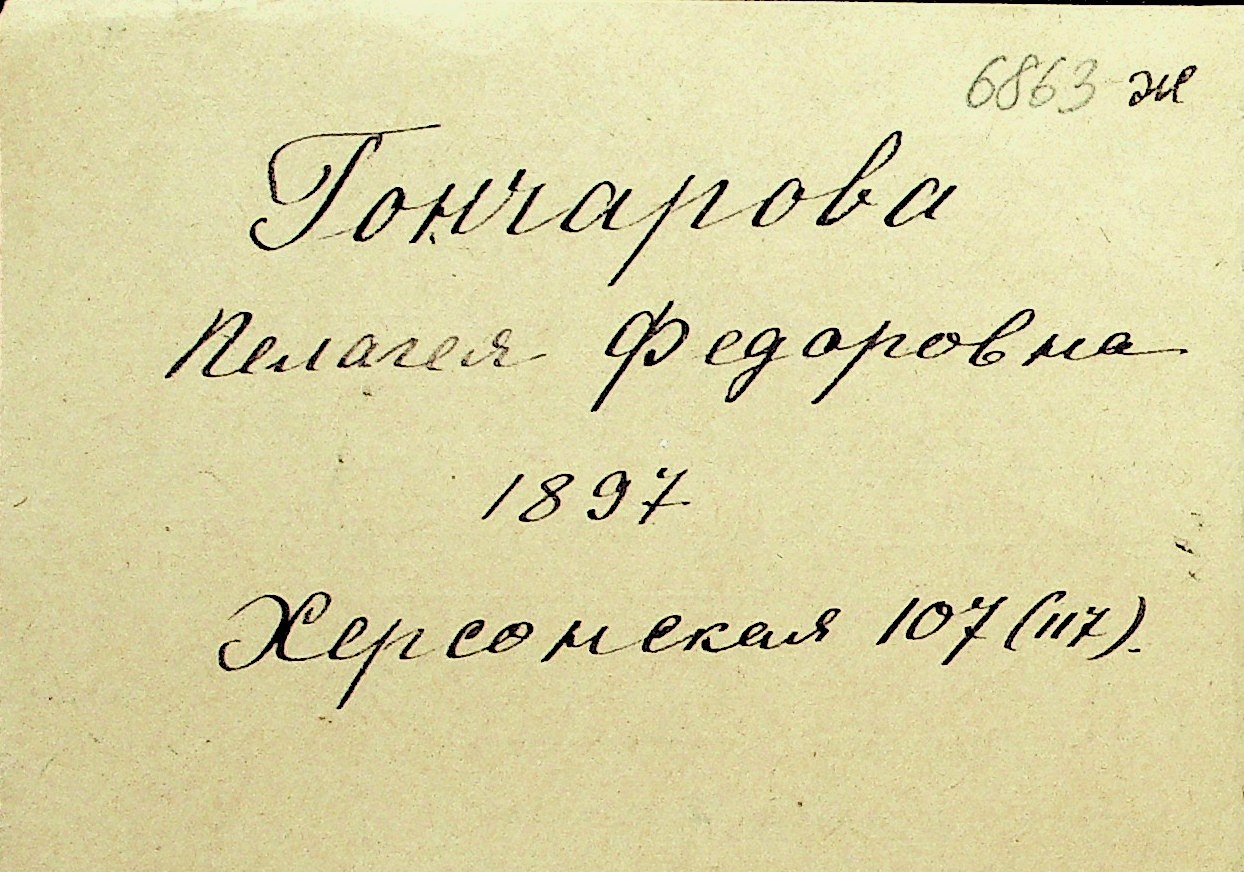 6863 ж
Гончарова
Пелагея Федоровна
1897
Херсонская 107 (117).